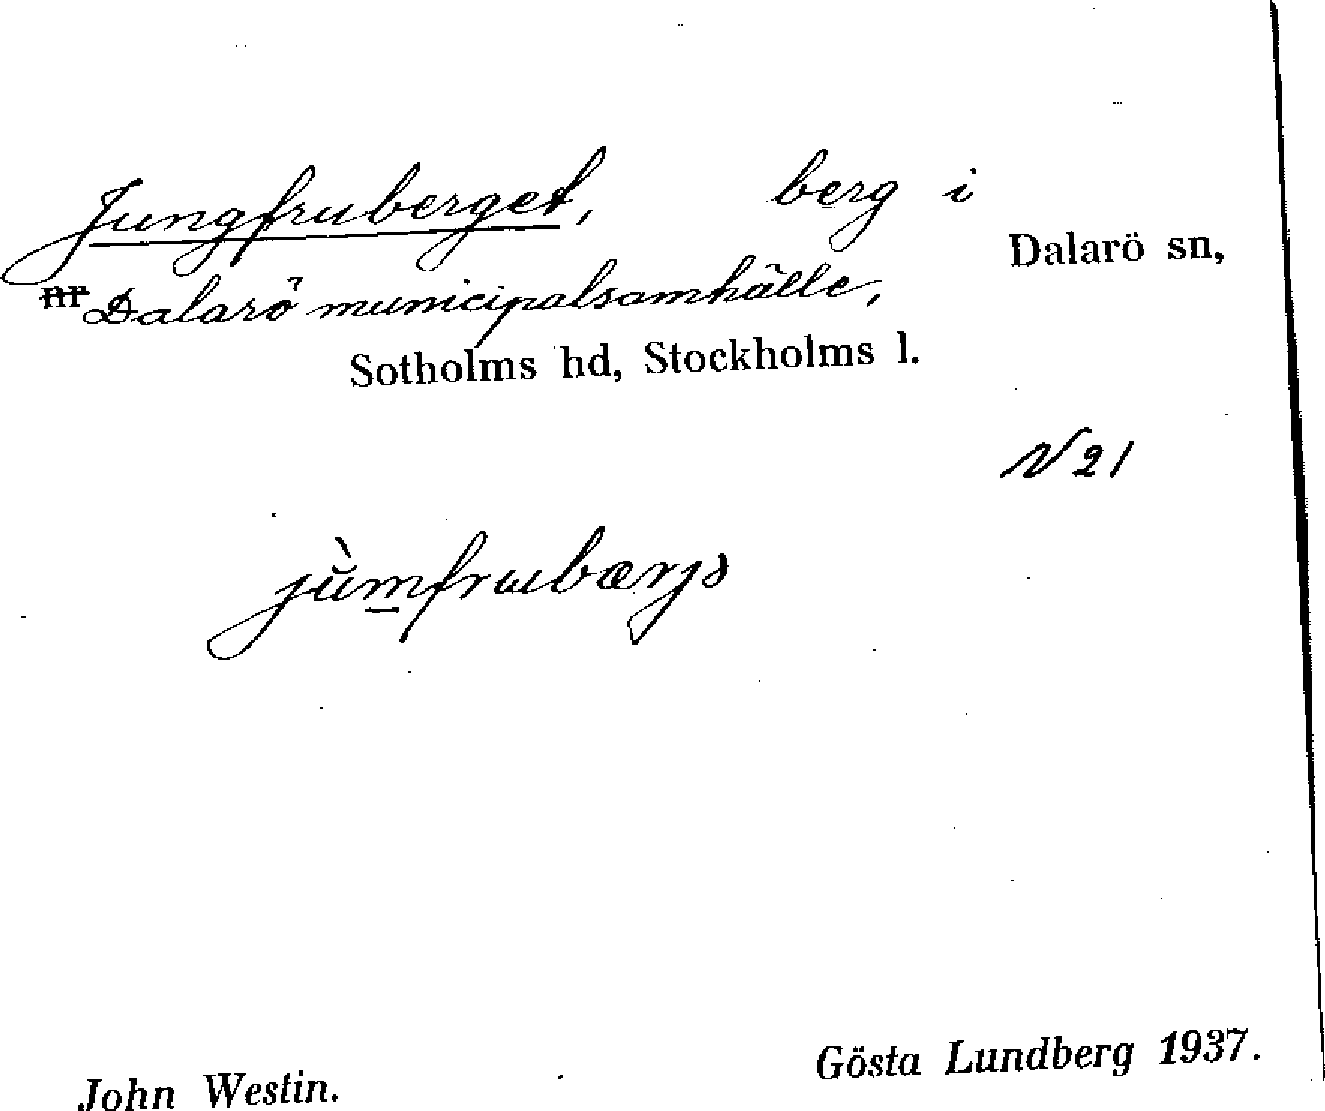 Jungfruberget, berg i
Dalarö sn,
nr Dalarö municipalsamhälle,
Sotholms hd, Stockholms l.
N 21
jù̀mfrɯbærjs
John Westin.
Gösta Lundberg 1937.